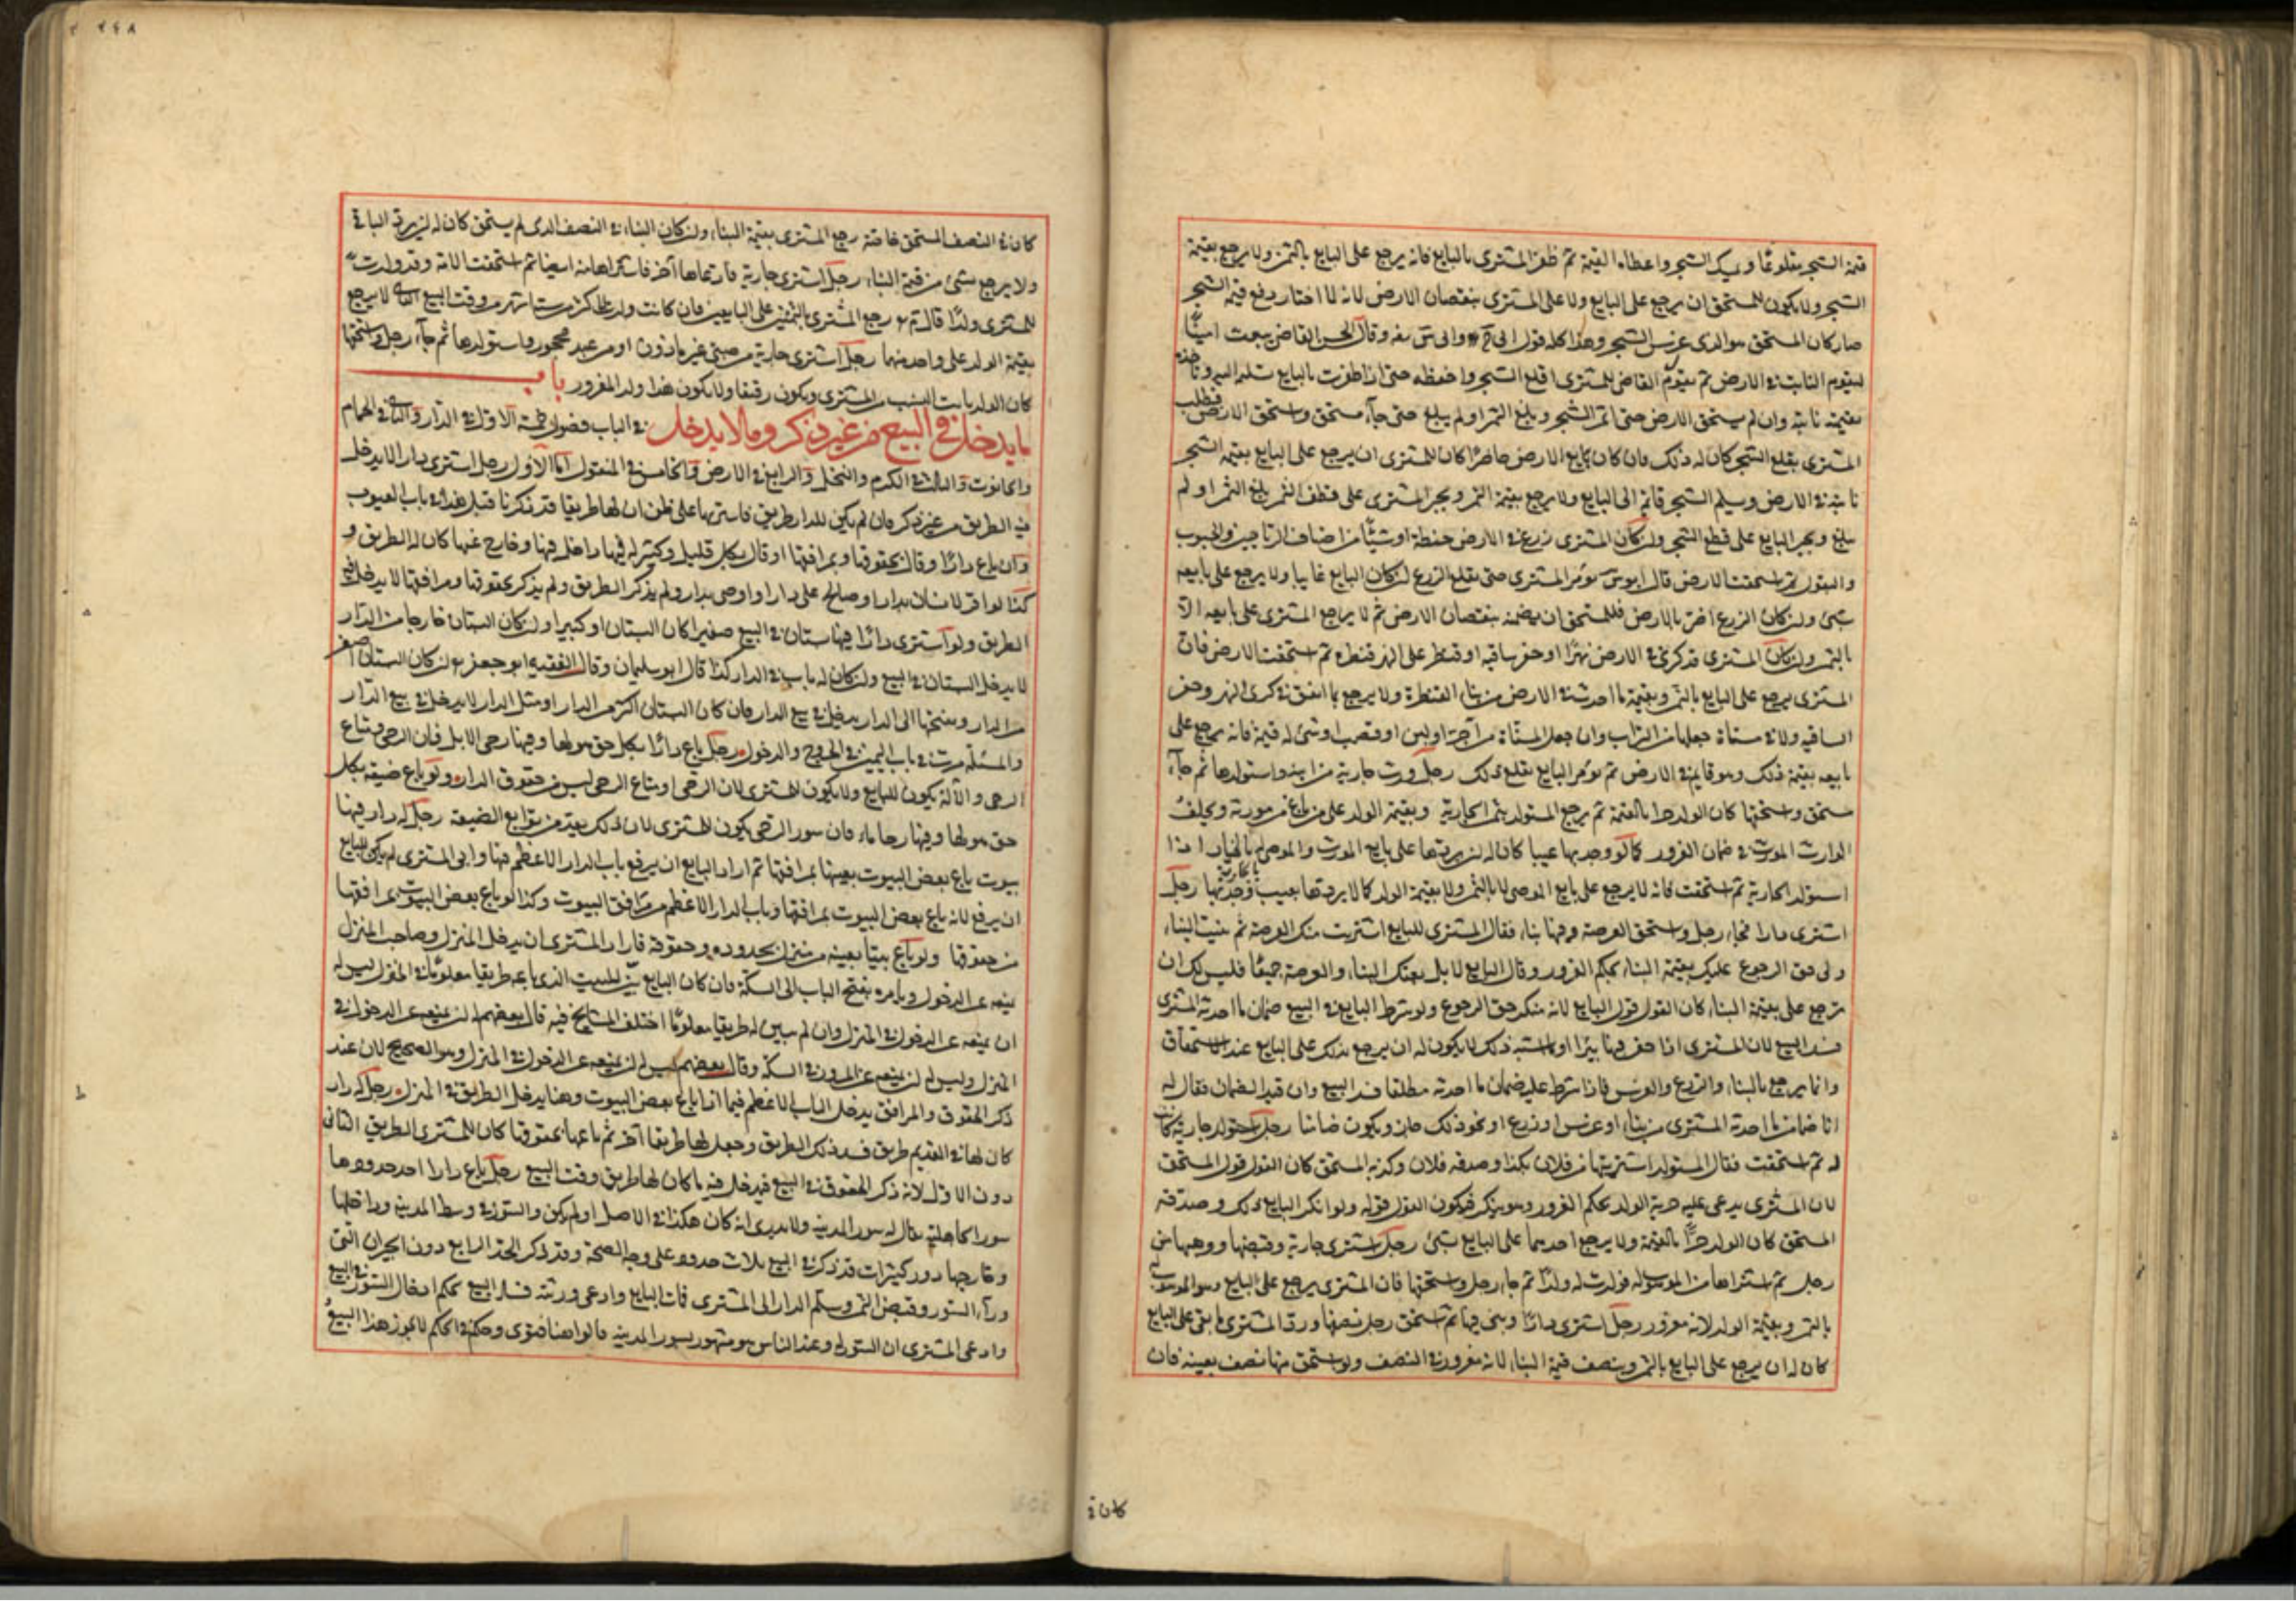 قيمة الشجر مقلوعا ويمسك الشجر واعطاه القيمة ثم ظفر المشترى بالبايع فانه يرجع على البايع بالثمن ولا يرجع بقيمة
الشجر ولا يكون للمستحق ان يرجع على البايع ولا على المشترى بنقصان الارض لانه لما اختار دفع قيمة الشجر
صار كان المستحق هو الذى غرس الشجر وهذا كله قول ابى وابى وقال الحسن القاضى يبعث امينا
ليقوم النابت فى الارض ثم يقول القاضى للمشترى اقلع الشجر واحفظه حتى اذا ظفرت بالبايع سلمه اليه وتاخذه
بقيمته نابتا وان لم يستحق الارض حتى اثمر الشجر وبلغ الثمر او لم يبلغ حتى جاء مستحق واستحق الارض فطلب
المشترى بقلع الشجر كان له ذلك فان كان بايع الارض حاضرا كان للمشترى ان يرجع على البايع بقيمة الشجر
نابتة فى الارض ويسلم الشجر قائما الى البايع ولا يرجع بقيمة الثمر ويجبر المشترى على قطف الثمر بلغ الثمر او لم
يبلغ ويجبر البايع على قطع الشجر ولو كان المشترى زرع فى الارض حنطة او شيئا من اصناف الرياحين والحبوب
والبقول ثم استحقت الارض قال ابو يؤمر المشترى حتى يقلع الزرع ان كان البايع غايبا ولا يرجع على بايعه
بشئ وان كان الزرع اضر بالارض فللمستحق ان يضمنه نقصان الارض ثم لا يرجع المشترى على بايعه الا
بالثمن ولو كان المشترى قد كرى فى الارض نهرا او حفر ساقية او قنطر على النهر قنطرة ثم استحقت الارض فان
المشترى يرجع على البايع بالثمن وبقيمة ما احدث فى الارض من بناء القنطرة ولا يرجع بما انفق فى كرى النهر وحفر
الساقية ولا فى مسناة جعلها من التراب وان جعل المسناة من آجر او لبن او قصب او شئ له قيمة فانه يرجع على
بايعه بقيمة ذلك وهو قايم فى الارض ثم يؤمر البايع بقلع ذلك رجل ورث جارية من ابيه واستولدها ثم جاء
مستحق واستحقها كان الولد حرا بالقيمة ثم يرجع المستولد بثمن الجارية وبقيمة الولد على من باع من مورثه ويخلف
الوارث المورث فى ضمان الغرور كما لو وجد بها عيبا كان له ان يردها على بايع المورث والموصى له بالجارية اذا
استولد الجارية ثم استحقت فانه لا يرجع على بايع الموصى لا بالثمن ولا بقيمة الولد كما لا يردها بعيب وجد بها رجل
اشترى دارا فجاء رجل واستحق العرصة وفيها بناء فقال المشترى للبايع اشتريت منك العرصة ثم بنيت البناء
ولى حق الرجوع عليك بقيمة البناء بحكم الغرور وقال البايع لا بل بعتك البناء والعرصة جميعا فليس لك ان
ترجع على بقيمة البناء كان القول قول البايع لانه منكر حق الرجوع ولو شرط البايع فى البيع ضمان ما احدثه المشترى
فسد البيع لان المشترى اذا حفر فيها بئرا او ما اشبه ذلك لا يكون له ان يرجع بذلك على البايع عند الاستحقاق
وانما يرجع بالبناء والزرع والغرس فاذا شرط عليه ضمان ما احدثه مطلقا فسد البيع وان قيد الضمان فقال له
انا ضامن ما احدثه المشترى من بناء او غرس او زرع او نحو ذلك جاز ويكون ضامنا رجل استولد جارية كانت
له ثم استحقت فقال المستولد اشتريتها من فلان بكذا وصدقه فلان وكذبه المستحق كان القول قول المستحق
لان المشترى يدعى عليه حرية الولد بحكم الغرور وهو ينكر فيكون القول قوله ولو انكر البايع ذلك وصدقه
المستحق كان الولد حرا بالقيمة ولا يرجع احدهما على البايع بشئ رجل اشترى جارية وقبضها ووهبها من
رجل ثم اشتراها من الموهوب له فولدت له ولدا ثم جاء رجل واستحقها فان المشترى يرجع على البايع وهو الموهوب له
بالثمن وبقيمة الولد لانه مغرور رجل اشترى دارا وبنى فيها ثم استحق رجل نصفها ورد المشترى ما بقى على البايع
كان له ان يرجع على البايع بالثمن وبنصف قيمة البناء لانه مغرور فى النصف ولو استحق منها نصف بعينه فان
كان فى
٢٤٨
كان فى النصف المستحق خاصة رجع المشترى بقيمة البناء وان كان البناء فى النصف الذى لم يستحق كان له ان يرد الباقى
ولا يرجع بشئ من قيمة البناء رجل اشترى جارية فادعاها آخر فاشتراها منه ايضا ثم استحقت الامة وقد ولدت
للمشترى ولدا قال رجع المشترى بالثمنين على البايعين فان كانت ولدت لاكثر من ستة اشهر من وقت البيع الثانى لا يرجع
بقيمة الولد على واحد منهما رجل اشترى جارية من صبى غير ماذون او من عبد محجور واستولدها ثم جاء رجل واستحقها
كان الولد ثابت النسب من المشترى ويكون رقيقا ولا يكون هذا ولد المغرور باب
ما يدخل فى البيع من غير ذكر وما لا يدخل فى الباب فصول خمسة الاول فى الدار والثانى فى الحمام
والحانوت والثالث فى الكرم والنخل والرابع فى الارض والخامس فى المنقول اما الاول رجل اشترى دارا لا يدخل
فيه الطريق من غير ذكر فان لم يكن للدار طريق فاشتراها على ظن ان لها طريقا قد ذكرنا قبل هذا فى باب العيوب
وان باع دارا وقال بحقوقها وبمرافقها او قال بكل قليل وكثير له فيها داخل فيها وخارج عنها كان له الطريق و
كذا لو اقر لانسان بدار او صالح على دار او اوصى بدار ولم يذكر الطريق ولم يذكر بحقوقها ومرافقها لا يدخل فيه
الطريق ولو اشترى دارا فيها بستان فى البيع صغيرا كان البستان او كبيرا ولو كان البستان خارجا من الدار
لا يدخل البستان فى البيع وان كان له باب فى الدار كذا قال ابو سليمان وقال الفقيه ابو جعفر ان كان البستان اصغر
من الدار ومفتحها الى الدار يدخل فى بيع الدار فان كان البستان اكبر من الدار او مثل الدار لا يدخل فى بيع الدار
والمسئلة مرت فى باب اليمين فى الخروج والدخول رجل باع دارا بكل حق هو لها وفيها رحى الابل فان الرحى ومتاع
الرحى والآلة يكون للبايع ولا يكون للمشترى لان الرحى ومتاع الرحى ليس من حقوق الدار ولو باع ضيعة بكل
حق هو لها وفيها رحا ماء فان الرحى يكون للمشترى لان ذلك يعد من توابع الضيعة رجل له دار فيها
بيوت باع بعض البيوت بعينها بمرافقها ثم اراد البايع ان يرفع باب الدار الاعظم وابى المشترى لم يكن للبايع
ان يرفع لانه باع بعض البيوت بمرافقها وباب الدار الاعظم من مرافق البيوت وكذا لو باع بعض البيوت بمرافقها
من حقوقها ولو باع بيتا بعينه من منزل بحدوده وحقوقه فاراد المشترى ان يدخل المنزل وصاحب المنزل
يمنعه عن الدخول ويامره بفتح الباب الى السكة فان كان البايع بين للبيت الذى باعه طريقا معلوما فى المنزل ليس له
ان يمنعه عن الدخول فى المنزل وان لم يبين له طريقا معلوما اختلف المشايخ فيه قال بعضهم له ان يمنعه عن الدخول فى
المنزل وليس له ان يمنعه عن المرور فى السكة وقال بعضهم ليس له ان يمنعه عن الدخول فى المنزل وهو الصحيح لان عند
ذكر الحقوق والمرافق يدخل الباب الاعظم فيما اذا باع بعض البيوت وهنا يدخل الطريق فى المنزل رجل له دار
كان لها فى القديم طريق فسد ذلك الطريق وجعل لها طريقا آخر ثم باعها بحقوقها كان للمشترى الطريق الثانى
دون الاول لانه ذكر الحقوق فى البيع فيدخل فيه ما كان لها طريق وقت البيع رجل باع دارا احد حدودها
سور الجاهلية يقال له سور المدينة ولا يدرى انه كان هكذا فى الاصل او لم يكن والسور فى وسط المدينة وداخلها
وخارجها دور كثيرات قد ذكر فى البيع ثلاث حدود على وجه الصحة وقد ذكر الحد الرابع دون الجيران التى
وراء السور وقبض الثمن وسلم الدار الى المشترى فمات البايع وادعى ورثته فساد البيع بحكم ادخال السور فى البيع
وادعى المشترى ان السور له وعند الناس هو مشهور بسور المدينة قالوا هنا فتوى وحكم فى الحكم لا يجوز هذا البيع